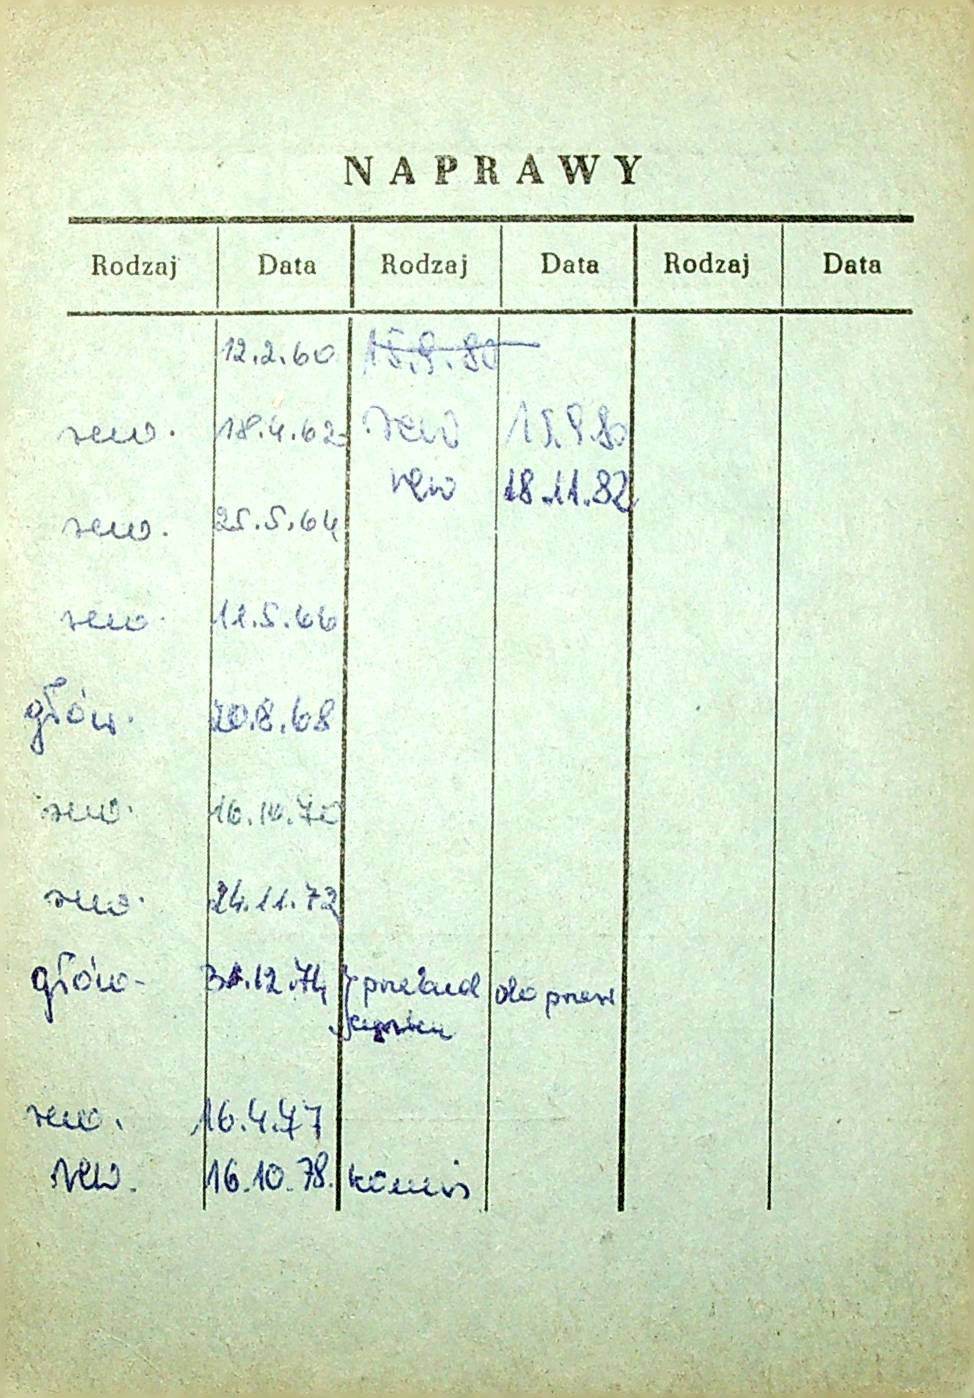 NAPRAWY
Rodzaj Data Rodzaj Data Rodzaj Data
12.2.60 15.9.80
rew. 18.4.62 rew 15.9.80
rew 18.11.82
rew. 25.5.64
rew. 11.5.66
głów. 20.8.68
rew. 16.10.70
rew. 24.11.72
głów- 31.12.74 do
rew. 16.4.77
rew. 16.10.78.